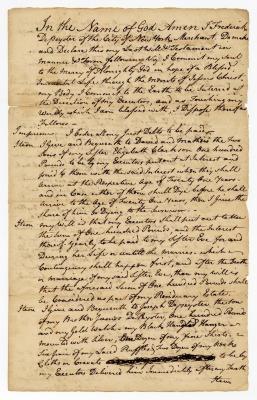 In the Name of God Amen I Frederick
DePeyster of the City of New York, Merchant, Do make
and Declare this my Last Will & Testament in
manner & Form following Viz. I Commit my Soul
to the Mercy of Almighty God in hopes of Blessed
Immortal Life through the Merits of Jesus Christ,
my Body I Commit to the Earth to be Interred at
the Direction of my Executors, and as Touching my
worldly which I am blessed with, I Dispose thereof as
Follows
Imprimis I Order all my Just Debts to be paid,
Item I give and Bequeath to David and Matthew the two
Sons of my Sister Elizabeth Clarkson One hundred
Pounds to be by my Executors put out at Interest and
paid to them with the said Interest when they shall
arrive at the Respective Age of Twenty One Years
and in Case either of them shall Dye before he shall
arrive to the Age of Twenty One Years, then I give the
Share of him so Dying to the Survivor
Item my will is that my Executors shall put out & at Int
the Sum of One hundred Pounds, and the Interest
thereof Yearly to be paid to my Sister Eve for and
During her Life or until the marriage which
Contingency shall happen first, and after the Death
or marriage of my said Sister Eve, then my will is
that the aforesaid Sum of One hundred Pounds shall
be Considered as part of my Residuary Estate,
Item I give and Bequeath to Joseph Depeyster the Son
of my Brother James DePeyster, One hundred Pounds
and my Gold Watch, my Black Handled Hanger
mounted with Silver, One Dozen of my fine Shirts,
Six pair of my Laced Ruffles, Two Dozen of my Neck
Cloths or Cravats to be by
my Executors Delivered him Immediately after my Death
Item